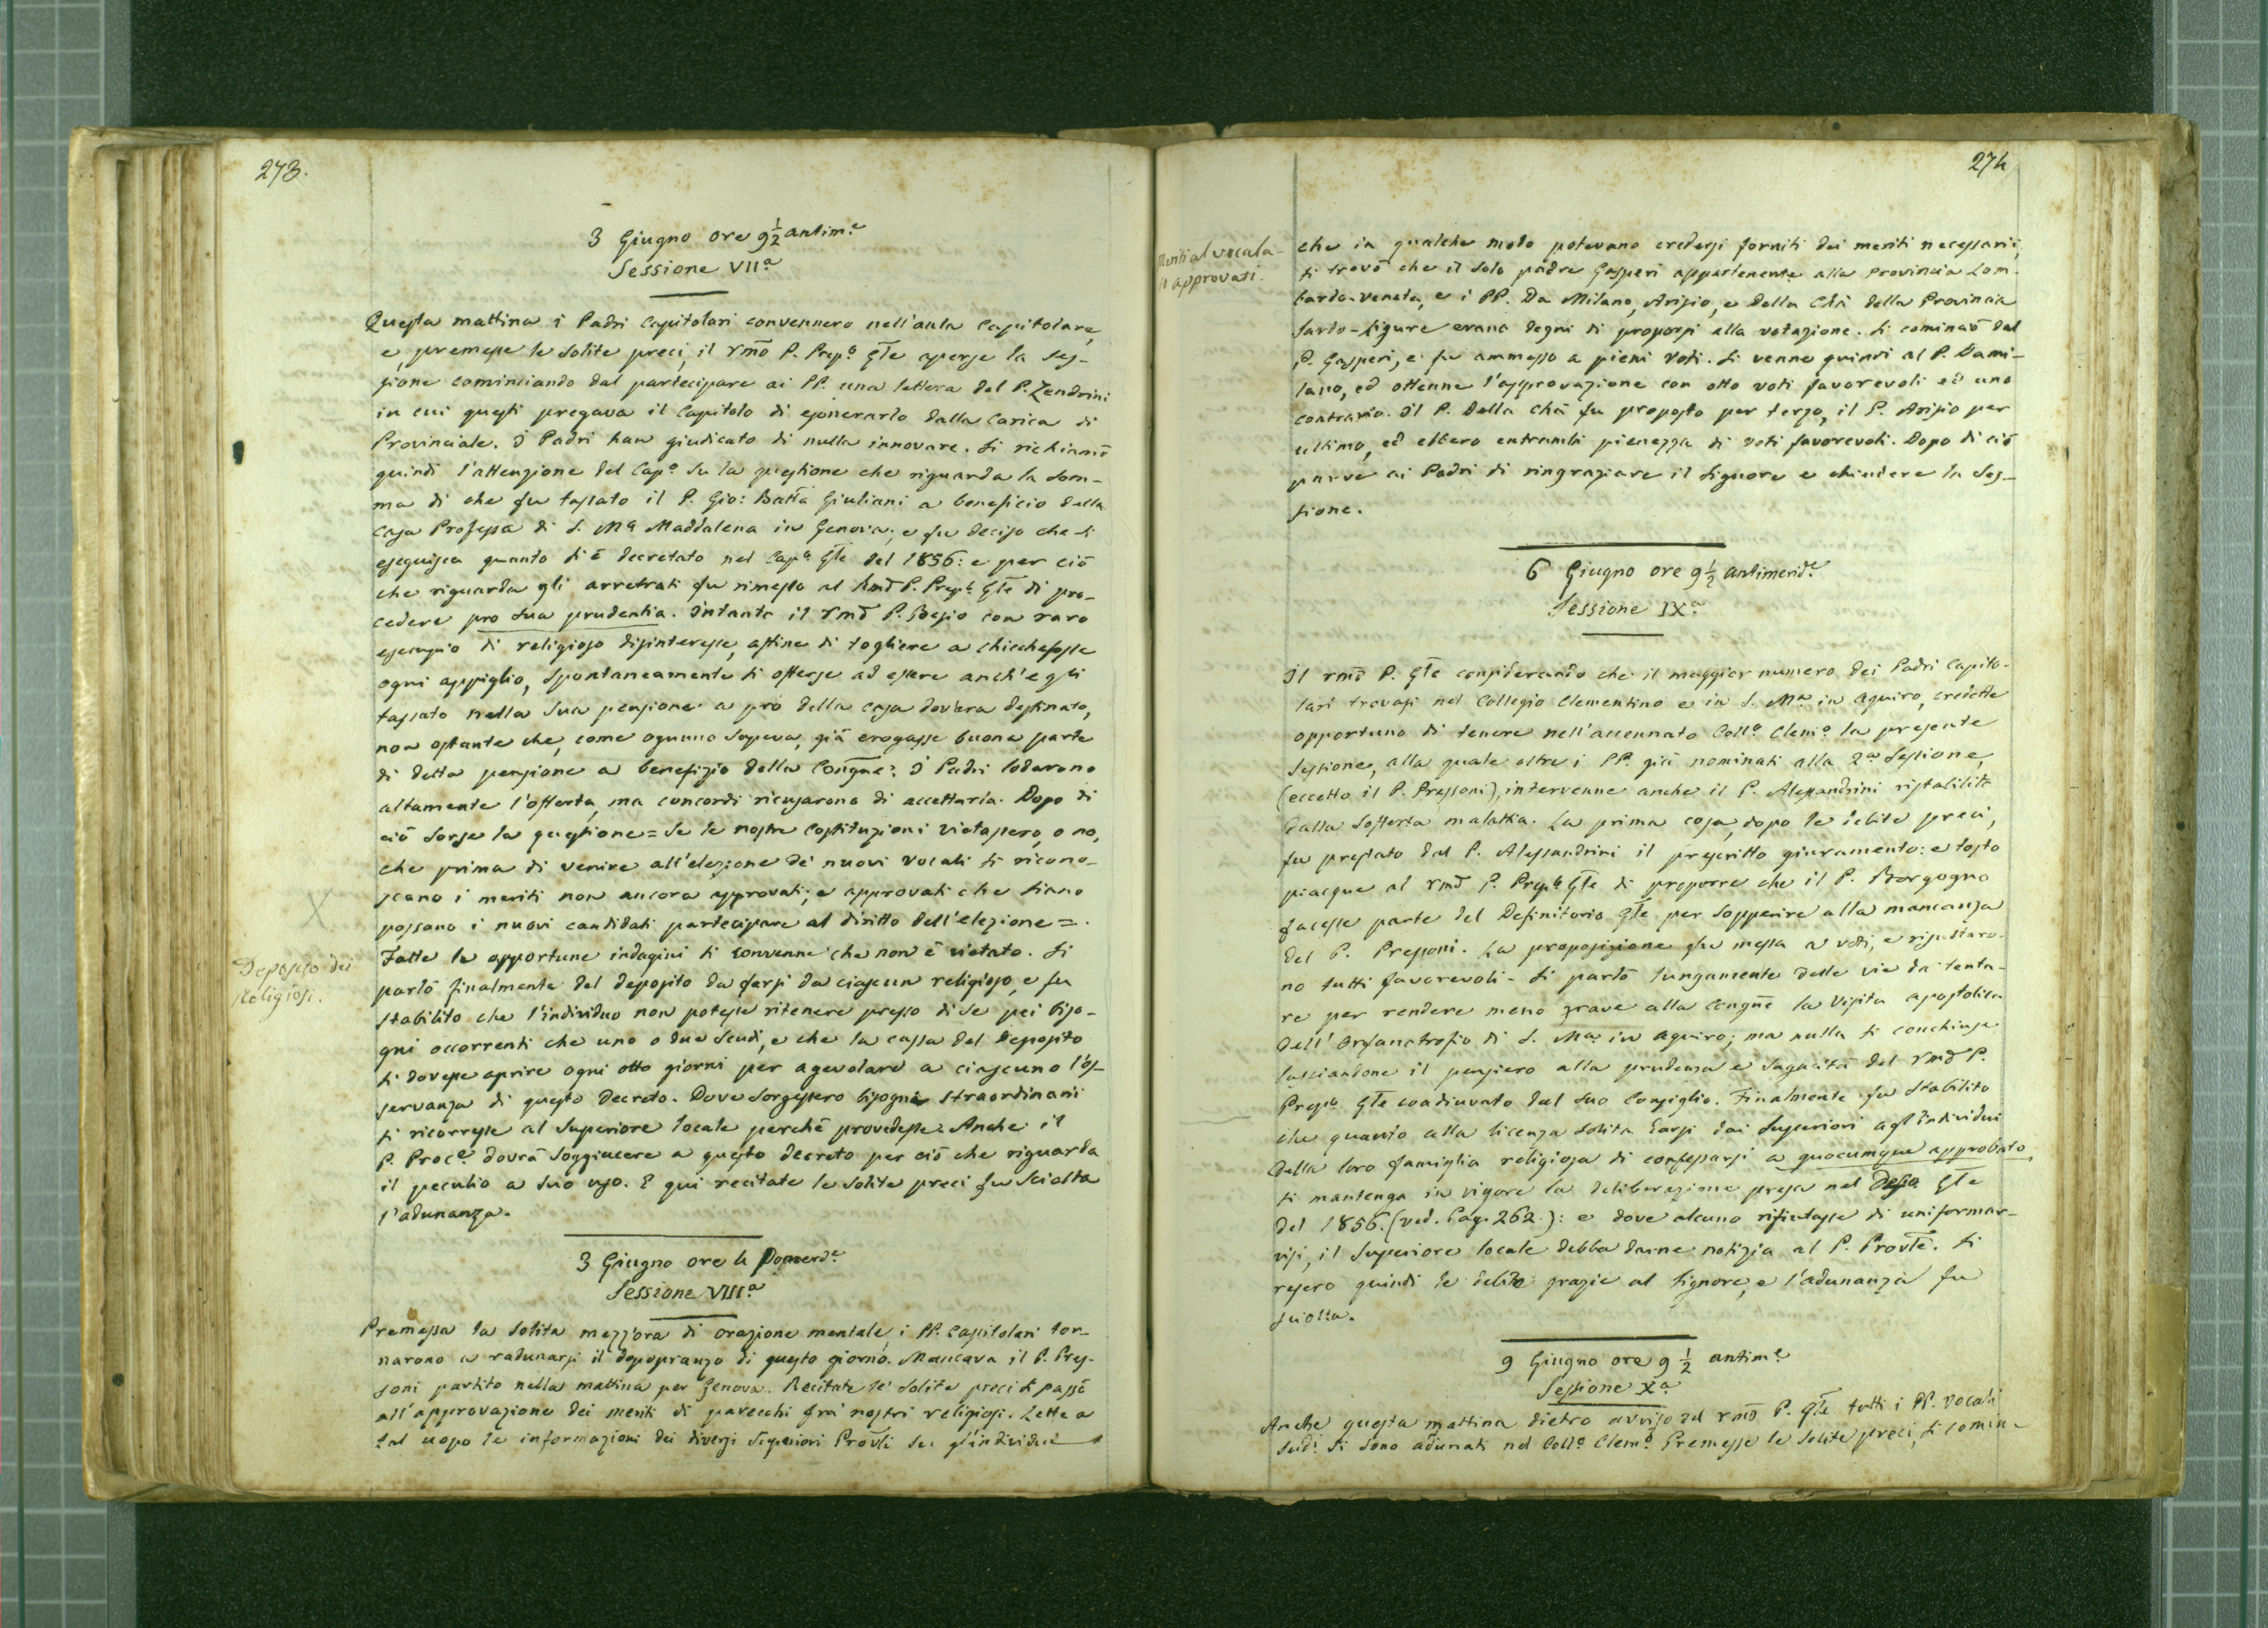 273.
3 Giugno ore 9½ antim.e
Sessione VII.a
Questa mattina i Padri Capitolari convennero nell'aula Capitolare,
e, premesse le solite preci, il rmo P. Prep.o Gle aperse la ses-
sione cominciando dal partecipare ai PP. una lettera del P. Zendrini
in cui questi pregava il Capitolo di esonerarlo dalla Carica di
Provinciale. I Padri han giudicato di nulla innovare. Si richiamò
quindi l'attenzione del Cap.o su la questione che riguarda la som-
ma di che fu tassato il P. Gio: Batta Giuliani a beneficio della
Casa Professa di S. Ma Maddalena in Genova; e fu deciso che si
eseguisca quanto si è decretato nel Cap.o Gle del 1856: e per ciò
che riguarda gli arretrati fu rimesso al Rmo P. Prep.o Gle di pro-
cedere pro sua prudentia. Intanto il rmo P. Besio con raro
esempio di religioso disinteresse, affine di togliere a chicchefosse
ogni appiglio, spontaneamente si offerse ad essere anch'egli
tassato nella sua pensione a prò della casa dov'era destinato,
non ostante che, come ognuno sapeva, già erogasse buona parte
di detta pensione a benefizio della Congne. I Padri lodarono
altamente l'offerta, ma concordi ricusarono di accettarla. Dopo di
ciò sorse la questione = Se le nostre costituzioni vietassero, o no,
che prima di venire all'elezione de' nuovi Vocali si ricono-
scano i meriti non ancora approvati; e approvati che siano
possano i nuovi candidati partecipare al diritto dell'elezione =.
Fatte le opportune indagini si convenne che non è vietato. Si
Deposito dei
Religiosi.
parlò finalmente del deposito da farsi da ciascun religioso, e fu
stabilito che l'individuo non potesse ritenere presso di se pei biso-
gni occorrenti che uno o due scudi, e che la cassa del Deposito
si dovesse aprire ogni otto giorni per agevolare a ciascuno l'os-
servanza di questo Decreto. Dove sorgessero bisogni straordinarii
si ricorresse al Superiore locale perchè provvedesse. Anche il
P. Proc.e dovrà soggiacere a questo decreto per ciò che riguarda
il peculio a suo uso. E qui recitate le solite preci fu sciolta
l'adunanza.
3 Giugno ore 4 Pomerd.e
Sessione VIII.a
Premessa la solita mezz'ora di orazione mentale, i PP. Capitolari tor-
narono a radunarsi il dopopranzo di questo giorno. Mancava il P. Pres-
soni partito nella mattina per Genova. Recitate le solite preci si passò
all'approvazione dei meriti di parecchi fra' nostri religiosi. Lette a
tal uopo le informazioni dei diversi Superiori Provli su gl'individui
274
Meriti al vocala-
to approvati.
che in qualche modo potevano credersi forniti dei meriti necessarii,
si trovò che il solo padre Gasperi appartenente alla Provincia Lom-
bardo-Veneta, e i PP. Da Milano, Arisio, e Della Chà della Provincia
Sardo-Ligure erano degni di proporsi alla votazione. Si cominciò dal
P. Gasperi, e fu ammesso a pieni voti. Si venne quindi al P. Dami-
lano, ed ottenne l'approvazione con otto voti favorevoli ed uno
contrario. Il P. Della Chà fu proposto per terzo, il P. Arisio per
ultimo, ed ebbero entrambi pienezza di voti favorevoli. Dopo di ciò
parve ai Padri di ringraziare il Signore e chiudere la Ses-
sione.
6 Giugno ore 9½ antimerid.e
Sessione IX.a
Il rmo P. Gle considerando che il maggior numero dei Padri Capito-
lari trovasi nel Collegio Clementino e in S. Ma in Aquiro, credette
opportuno di tenere nell'accennato Coll.o Clem.o la presente
Sessione, alla quale oltre i PP. già nominati alla 2a Sessione,
(eccetto il P. Pressoni), intervenne anche il P. Alessandrini ristabilito
dalla sofferta malattia. La prima cosa, dopo le debite preci,
fu prestato dal P. Alessandrini il prescritto giuramento: e tosto
piacque al rmo P. Prep.o Gle di proporre che il P. Borgogno
facesse parte del Definitorio Gle per sopperire alla mancanza
del P. Pressoni. La proposizione fu messa a voti, e risultaro-
no tutti favorevoli. Si parlò lungamente delle vie da tenta-
re per rendere meno grave alla Congne la Visita apostolica
dell'Orfanotrofio di S. Ma in Aquiro; ma nulla si conchiuse
lasciandone il pensiero alla prudenza e sagacità del rmo P.
Prep.o Gle coadiuvato dal suo Consiglio. Finalmente fu stabilito
che quanto alla licenza solita darsi dai Superiori agl'individui
della loro famiglia religiosa di confessarsi a quocumque approbato,
si mantenga in vigore la deliberazione presa nel Defio Gle
del 1856. (ved. Pag. 262.): e dove alcuno rifiutasse di uniformar-
visi, il Superiore locale debba darne notizia al P. Provle. Si
resero quindi le debite grazie al Signore, e l'adunanza fu
sciolta.
9 Giugno ore 9½ antim.e
Sessione X.a
Anche questa mattina dietro avviso del rmo P. Gle tutti i PP. Vocali
sud.i si sono adunati nel Coll.o Clem.o Premesse le solite preci, si comin-